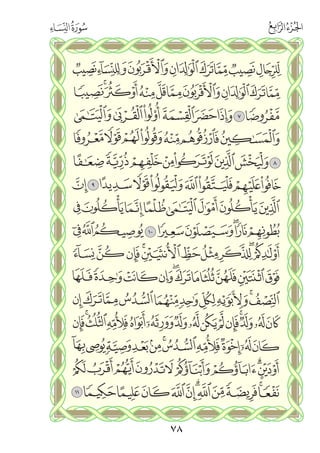 الجُزْءُ الرَّابِعُ
سُورَةُ النِّسَاءِ
لِّلرِّجَالِ نَصِيبٌ مِّمَّا تَرَكَ الْوَالِدَانِ وَالْأَقْرَبُونَ وَلِلنِّسَاءِ نَصِيبٌ
مِّمَّا تَرَكَ الْوَالِدَانِ وَالْأَقْرَبُونَ مِمَّا قَلَّ مِنْهُ أَوْ كَثُرَ نَصِيبًا
مَّفْرُوضًا ٧ وَإِذَا حَضَرَ الْقِسْمَةَ أُولُو الْقُرْبَىٰ وَالْيَتَامَىٰ
وَالْمَسَاكِينُ فَارْزُقُوهُم مِّنْهُ وَقُولُوا لَهُمْ قَوْلًا مَّعْرُوفًا
٨ وَلْيَخْشَ الَّذِينَ لَوْ تَرَكُوا مِنْ خَلْفِهِمْ ذُرِّيَّةً ضِعَافًا
خَافُوا عَلَيْهِمْ فَلْيَتَّقُوا اللَّهَ وَلْيَقُولُوا قَوْلًا سَدِيدًا ٩ إِنَّ
الَّذِينَ يَأْكُلُونَ أَمْوَالَ الْيَتَامَىٰ ظُلْمًا إِنَّمَا يَأْكُلُونَ فِي
بُطُونِهِمْ نَارًا وَسَيَصْلَوْنَ سَعِيرًا ١٠ يُوصِيكُمُ اللَّهُ فِي
أَوْلَادِكُمْ لِلذَّكَرِ مِثْلُ حَظِّ الْأُنثَيَيْنِ فَإِن كُنَّ نِسَاءً
فَوْقَ اثْنَتَيْنِ فَلَهُنَّ ثُلُثَا مَا تَرَكَ وَإِن كَانَتْ وَاحِدَةً فَلَهَا
النِّصْفُ وَلِأَبَوَيْهِ لِكُلِّ وَاحِدٍ مِّنْهُمَا السُّدُسُ مِمَّا تَرَكَ إِن
كَانَ لَهُ وَلَدٌ فَإِن لَّمْ يَكُن لَّهُ وَلَدٌ وَوَرِثَهُ أَبَوَاهُ فَلِأُمِّهِ الثُّلُثُ فَإِن
كَانَ لَهُ إِخْوَةٌ فَلِأُمِّهِ السُّدُسُ مِن بَعْدِ وَصِيَّةٍ يُوصِي بِهَا
أَوْ دَيْنٍ آبَاؤُكُمْ وَأَبْنَاؤُكُمْ لَا تَدْرُونَ أَيُّهُمْ أَقْرَبُ لَكُمْ
نَفْعًا فَرِيضَةً مِّنَ اللَّهِ إِنَّ اللَّهَ كَانَ عَلِيمًا حَكِيمًا ١١
٧٨